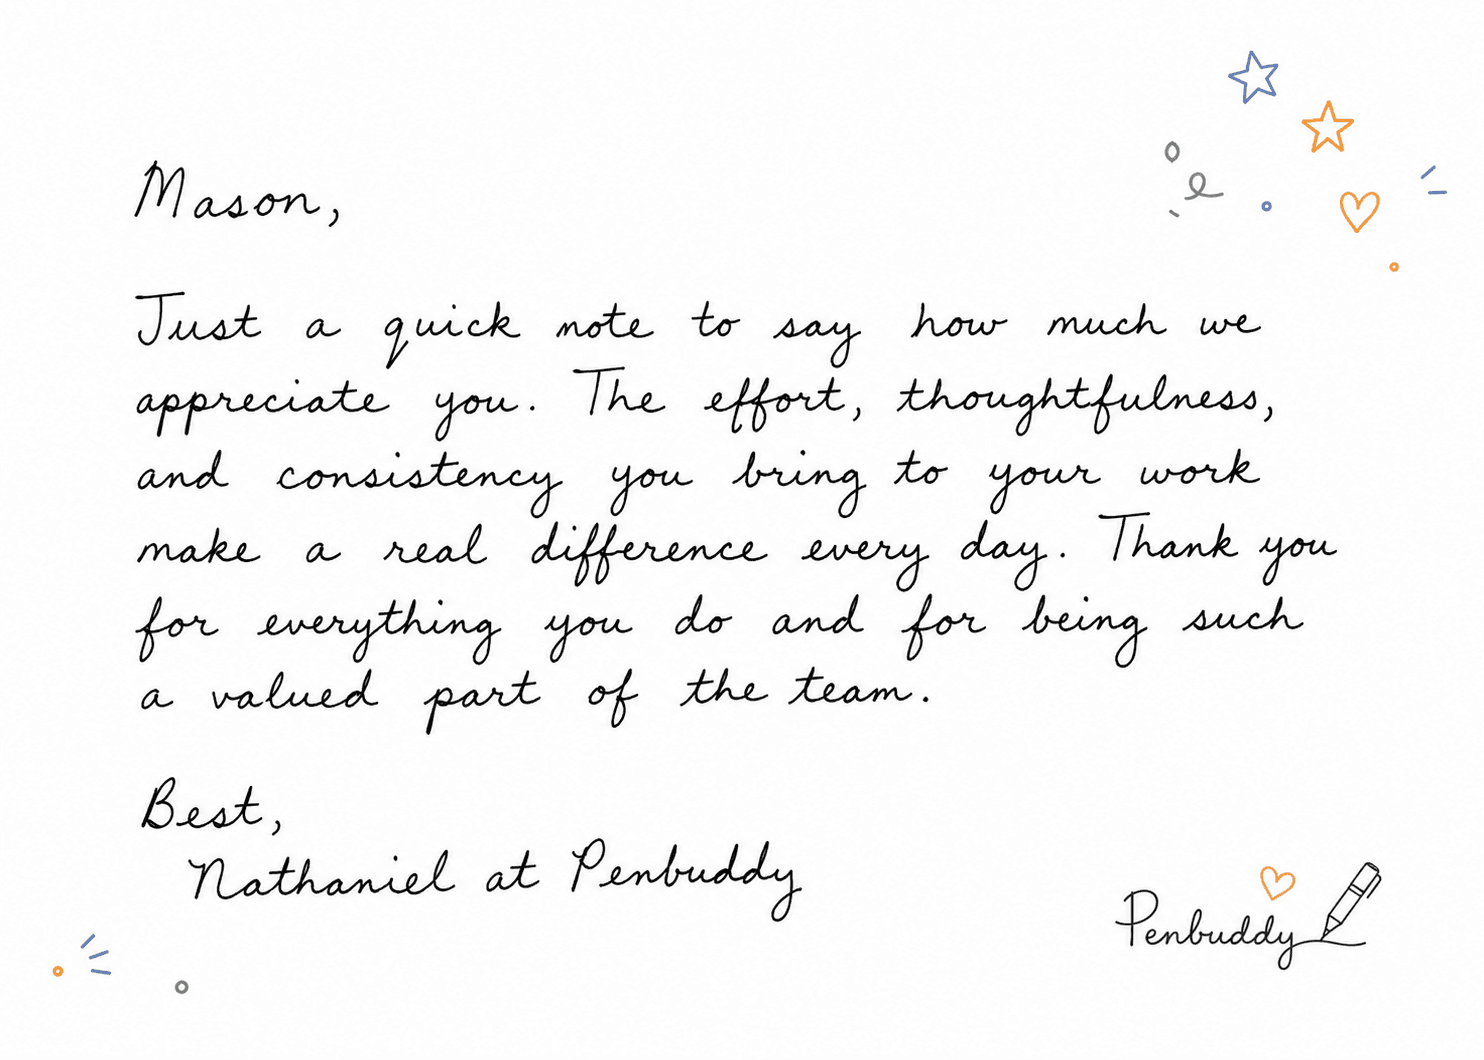 Mason,
Just a quick note to say how much we
appreciate you. The effort, thoughtfulness,
and consistency you bring to your work
make a real difference every day. Thank you
for everything you do and for being such
a valued part of the team.
Best,
Nathaniel at Penbuddy
Penbuddy